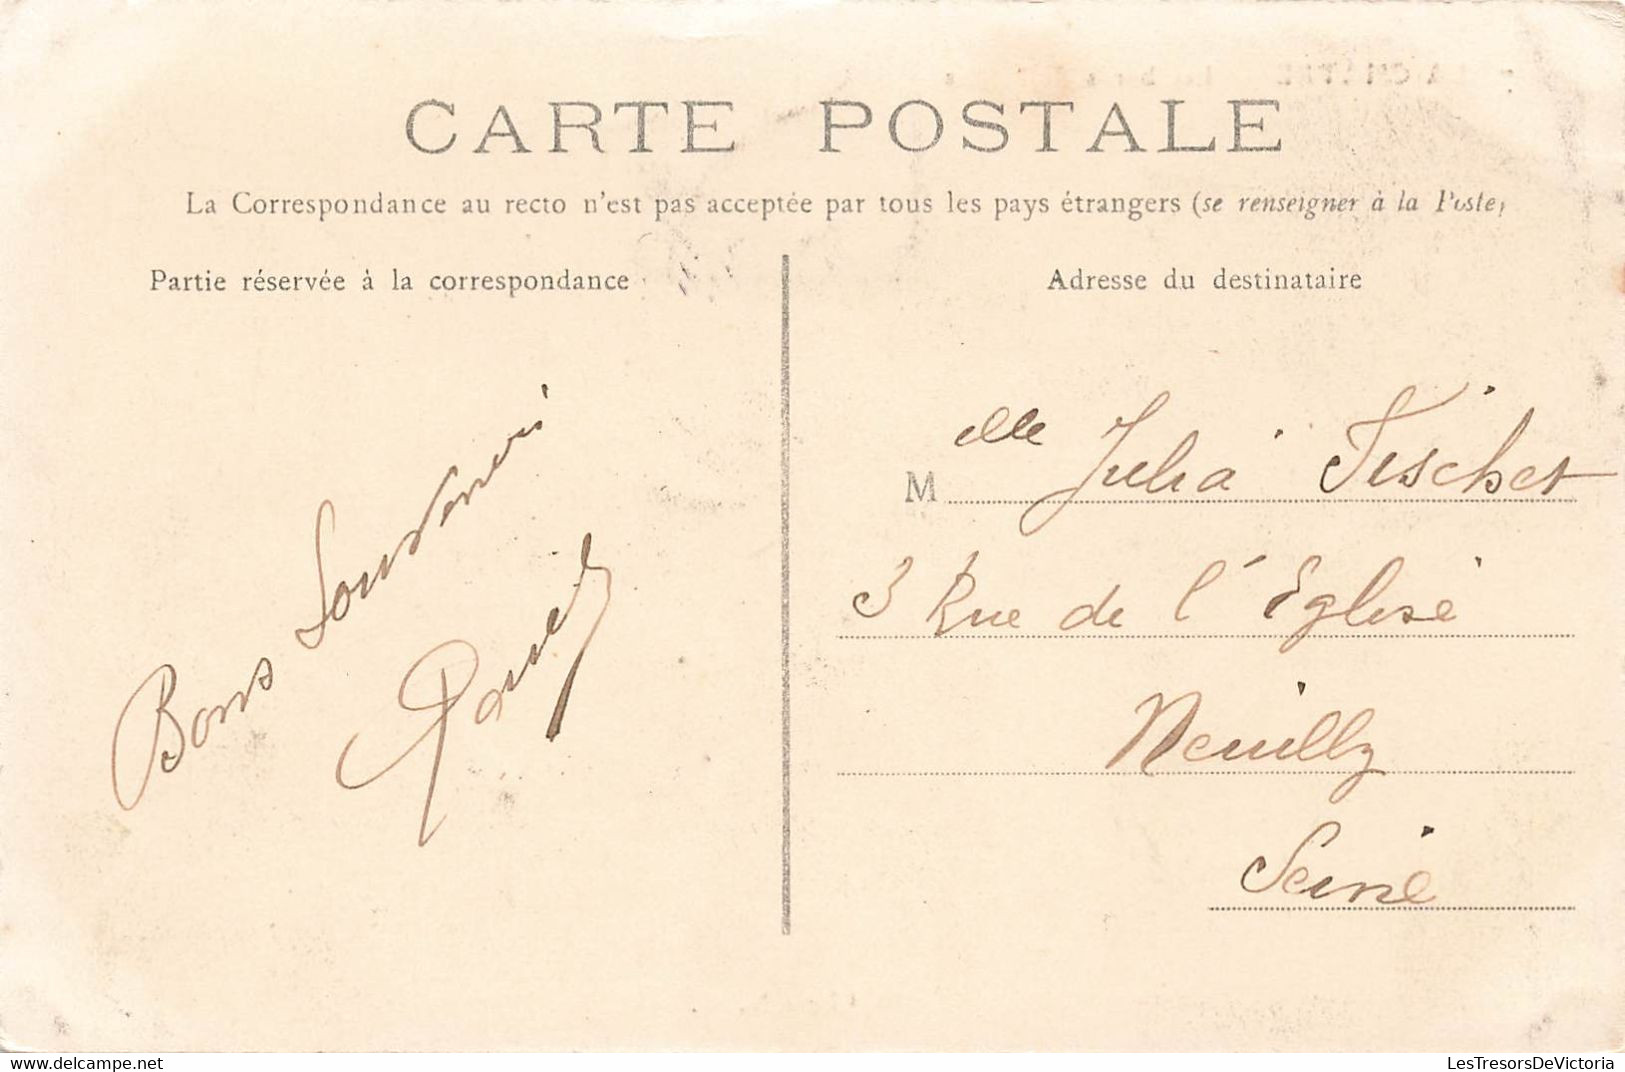 CARTE POSTALE
La Correspondance au recto n'est pas acceptée par tous les pays étrangers (se renseigner à la Poste)
Partie réservée à la correspondance
Adresse du destinataire
Bons Souvenirs
Melle Julia Fischer
3 Rue de l'Eglise
Neuilly
Seine
LesTresorsDeVictoria